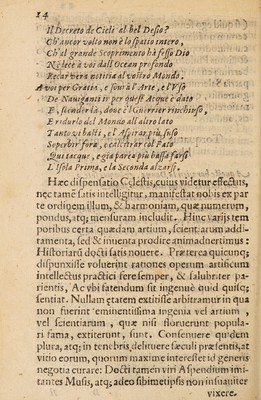 14
Il Decreto de Cieli al bel Desio?
Ch'ancor volto non è lo spatio intero,
Ch'al grande Scoprimento hà fesso Dio
Nè lece à voi dall'Ocean profondo
Recar vera notitia al vostro Mondo.
A voi per Gratia, e sour'à l'Arte, e l'Vso
De Nauiganti ir per quest' Acque è dato
E, scender là, doue è il Guerrier rinchiuso,
E ridurlo del Mondo all'altro lato
Tanto vi basti, e l'Aspirar più suso
Superbir fora, e calcitrar col Fato
Qui tacque, e già parea più bassa farsi
L'Isola Prima, e la Seconda alzarsi.
Hæc dispensatio Cęlestis, cuius videtur effectus,
nec tamē satis intelligitur, manifestat nobis ex par
te ordinem illum, & harmoniam, quæ numerum,
pondus, atq; mensuram includit. Hinc varijs tem
poribus certa quædam artium, scientiarum addi-
tamenta, sed & inuenta prodire animaduertimus:
Historiarū docti satis nouere. Præterea quicunq;
dispunxisse voluerint rationes operum artiūcum
intellectus practici fere semper, & salubriter pa-
rientis, Ac vbi fatendum sit ingenuè quid quisq;
sentiat. Nullam ętatem extitisse arbitramur in qua
non fuerint eminentissima ingenia vel artium,
vel scientiarum, quæ nisi floruerunt popula-
ri fama, extiterunt, sunt. Consenuere quidem
plura, atq; in tenebris delituere sæculi præsentis, at
vitio eorum, quorum maxime interesset id generis
negotia curare: Docti tamen viri Aspendium imi-
tantes Musis, atq; adeo sibimetipsis non insuauiter
vixere.